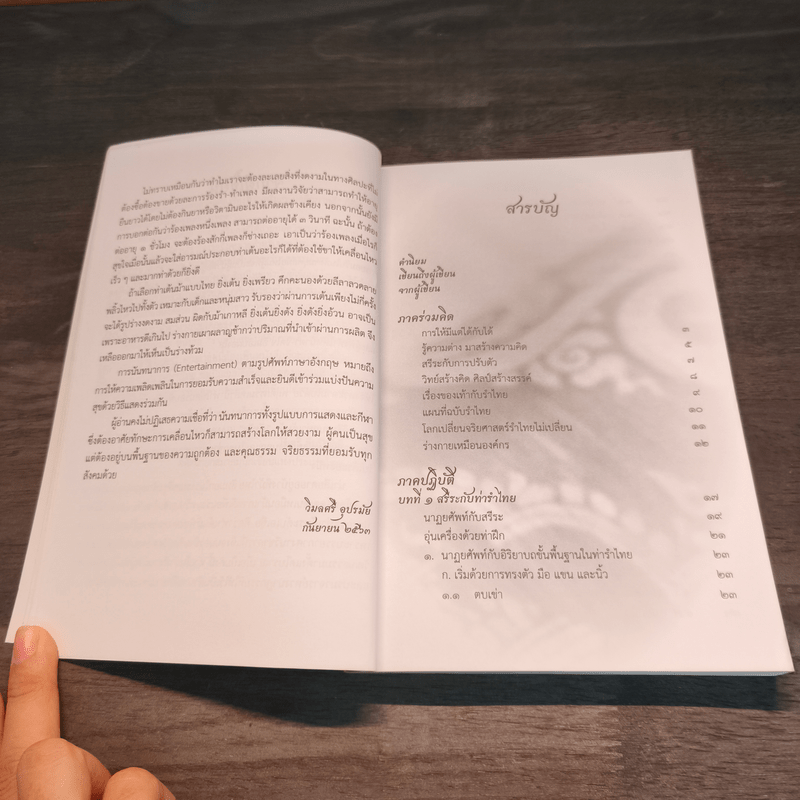 ไม่ทราบเหมือนกันว่าทำไมเราจะต้องละเลยสิ่งที่งดงามในทางศิลปะที่ไม่
ต้องซื้อต้องขายด้วยสะการร้องรำ-ทำเพลง มีผลงานวิจัยว่าสามารถทำให้อายุ
ยืนยาวได้โดยไม่ต้องกินยาหรือวิตามินอะไรให้เกิดผลข้างเคียง นอกจากนั้นยังมี
การบอกต่อกันว่าร้องเพลงหนึ่งเพลง สามารถต่ออายุได้ ๓ วินาที ฉะนั้น ถ้าต้อง
ต่ออายุ ๑ ชั่วโมง จะต้องร้องสักกี่เพลงก็ช่างเถอะ เอาเป็นว่าร้องเพลงเมื่อไรก็
สุขใจเมื่อนั้นแล้วจะใส่อารมณ์ประกอบท่าเต้นอะไรก็ได้ที่ต้องใช้ขาให้เคลื่อนไหว
เร็ว ๆ และมากท่าด้วยก็ยิ่งดี
ถ้าเลือกท่าเต้นม้าแบบไทย ยิ่งเต้น ยิ่งเพรียว คึกคะนองด้วยลีลาลวดลาย
พลิ้วไหวไปทั้งตัว เหมาะกับเด็กและหนุ่มสาว รับรองว่าผ่านการเต้นเพียงไม่กี่ครั้ง
จะได้รูปร่างงดงาม สมส่วน ผิดกับม้าเกาหลี ยิ่งเต้นยิ่งดัง ยิ่งดังยิ่งอ้วน อาจเป็น
เพราะอาหารดีเกินไป ร่างกายเผาผลาญช้ากว่าปริมาณที่นำเข้าผ่านการผลิต จึง
เหลือออกมาให้เห็นเป็นร่างท้วม
การนันทนาการ (Entertainment) ตามรูปศัพท์ภาษาอังกฤษ หมายถึง
การให้ความเพลิดเพลินในการยอมรับความสำเร็จและยินดีเข้าร่วมแบ่งปันความ
สุขด้วยวิธีแสดงร่วมกัน
ผู้อ่านคงไม่ปฏิเสธความเชื่อที่ว่า นันทนาการทั้งรูปแบบการแสดงและกีฬา
ซึ่งต้องอาศัยทักษะการเคลื่อนไหวก็สามารถสร้างโลกให้สวยงาม ผู้คนเป็นสุข
แต่ต้องอยู่บนพื้นฐานของความถูกต้อง และคุณธรรม จริยธรรมที่ยอมรับทุก
สังคมด้วย
วิมลศรี อุปรมัย
กันยายน ๒๕๖๓
สารบัญ
คำนิยม
เขียนถึงผู้เขียน
จากผู้เขียน
ภาคร่วมคิด
การให้มีแต่ได้กับได้ ๓
รู้ความต่าง มาสร้างความคิด ๕
สรีระกับการปรับตัว ๗
วิทย์สร้างคิด ศิลป์สร้างสรรค์ ๘
เรื่องของเท้ากับรำไทย ๙
แผนที่ฉบับรำไทย ๑๐
โลกเปลี่ยนจริยศาสตร์รำไทยไม่เปลี่ยน ๑๑
ร่างกายเหมือนองค์กร ๑๒
ภาคปฏิบัติ
บทที่ ๑ สรีระกับท่ารำไทย ๑๗
นาฏยศัพท์กับสรีระ ๑๙
อุ่นเครื่องด้วยท่าฝึก ๒๑
๑. นาฏยศัพท์กับอิริยาบถขั้นพื้นฐานในท่ารำไทย ๒๓
ก. เริ่มด้วยการทรงตัว มือ แขน และนิ้ว ๒๓
๑.๑ ตบเข่า ๒๓